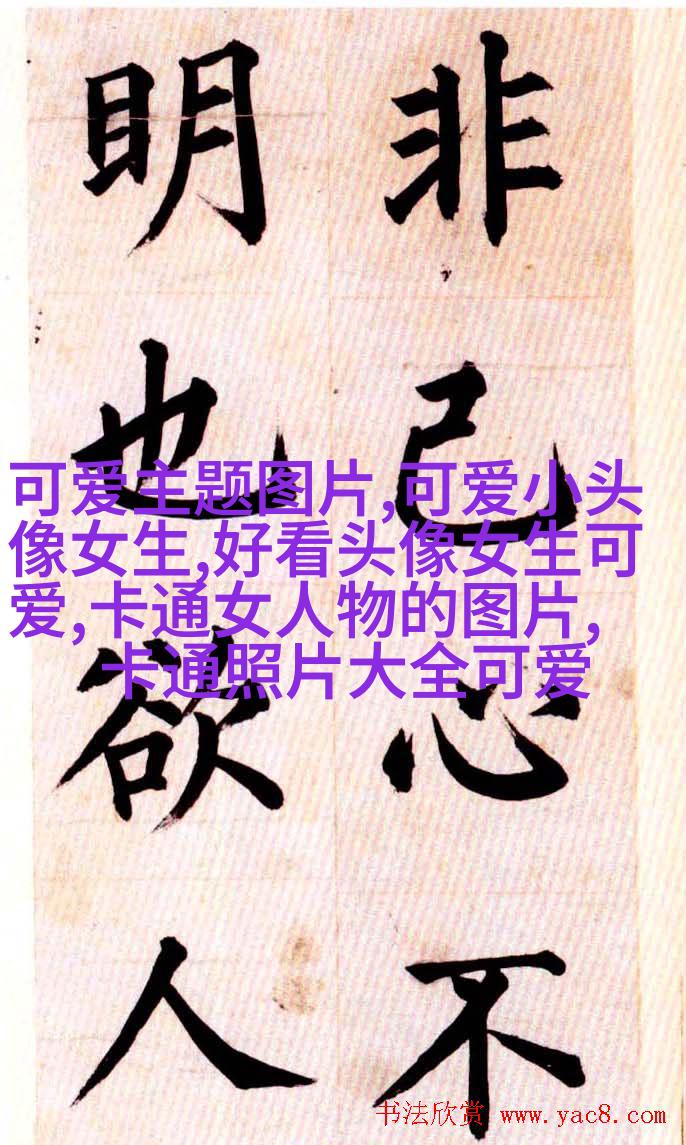 非己心不
明也欲人
可爱主题图片,可爱小头
像女生,好看头像女生可
爱,卡通女人物的图片,
卡通照片大全可爱
书法欣赏 www.yac8.com